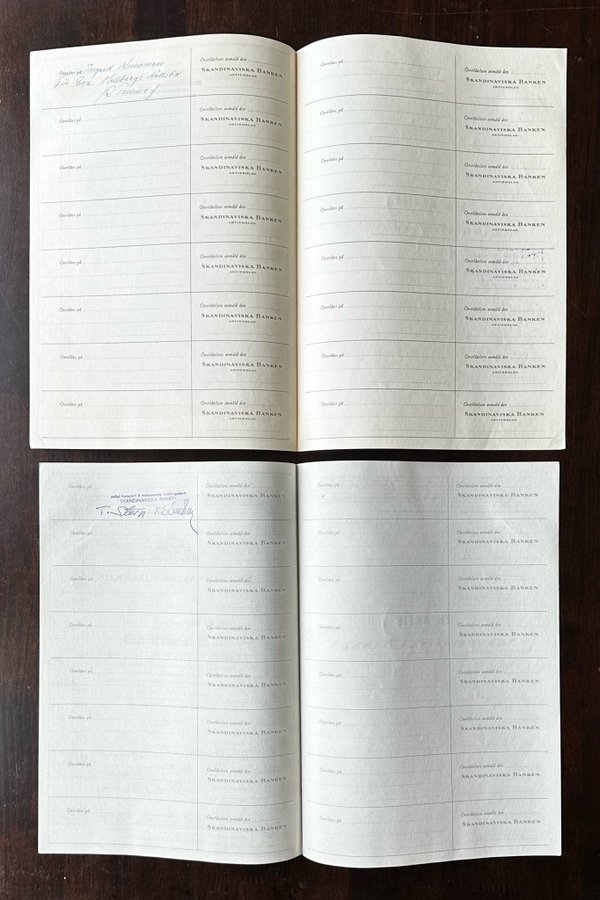 Överlåtes på Ingrid
för Eva dödsbo
Överlåtelsen anmäld den
SKANDINAVISKA BANKEN
AKTIEBOLAG
Överlåtes på
Överlåtelsen anmäld den
SKANDINAVISKA BANKEN
AKTIEBOLAG
Överlåtes på
Överlåtelsen anmäld den
SKANDINAVISKA BANKEN
AKTIEBOLAG
Överlåtes på
Överlåtelsen anmäld den
SKANDINAVISKA BANKEN
AKTIEBOLAG
Överlåtes på
Överlåtelsen anmäld den
SKANDINAVISKA BANKEN
AKTIEBOLAG
Överlåtes på
Överlåtelsen anmäld den
SKANDINAVISKA BANKEN
AKTIEBOLAG
Överlåtes på
Överlåtelsen anmäld den
SKANDINAVISKA BANKEN
AKTIEBOLAG
Överlåtes på
Överlåtelsen anmäld den
SKANDINAVISKA BANKEN
AKTIEBOLAG
Överlåtes på
Överlåtelsen anmäld den
SKANDINAVISKA BANKEN
AKTIEBOLAG
Överlåtes på
Överlåtelsen anmäld den
SKANDINAVISKA BANKEN
AKTIEBOLAG
Överlåtes på
Överlåtelsen anmäld den
SKANDINAVISKA BANKEN
AKTIEBOLAG
Överlåtes på
Överlåtelsen anmäld den
SKANDINAVISKA BANKEN
AKTIEBOLAG
Överlåtes på
Överlåtelsen anmäld den
SKANDINAVISKA BANKEN
AKTIEBOLAG
Överlåtes på
Överlåtelsen anmäld den
SKANDINAVISKA BANKEN
AKTIEBOLAG
Överlåtes på
Överlåtelsen anmäld den
SKANDINAVISKA BANKEN
AKTIEBOLAG
Överlåtes på
Överlåtelsen anmäld den
SKANDINAVISKA BANKEN
AKTIEBOLAG
Överlåtes på
enligt transport å
SKANDINAVISKA BANKEN
T. Stern
Överlåtelsen anmäld den
SKANDINAVISKA BANKEN
Överlåtes på
Överlåtelsen anmäld den
SKANDINAVISKA BANKEN
Överlåtes på
Överlåtelsen anmäld den
SKANDINAVISKA BANKEN
Överlåtes på
Överlåtelsen anmäld den
SKANDINAVISKA BANKEN
Överlåtes på
Överlåtelsen anmäld den
SKANDINAVISKA BANKEN
Överlåtes på
Överlåtelsen anmäld den
SKANDINAVISKA BANKEN
Överlåtes på
Överlåtelsen anmäld den
SKANDINAVISKA BANKEN
Överlåtes på
Överlåtelsen anmäld den
SKANDINAVISKA BANKEN
Överlåtes på
Överlåtelsen anmäld den
SKANDINAVISKA BANKEN
Överlåtes på
Överlåtelsen anmäld den
SKANDINAVISKA BANKEN
Överlåtes på
Överlåtelsen anmäld den
SKANDINAVISKA BANKEN
Överlåtes på
Överlåtelsen anmäld den
SKANDINAVISKA BANKEN
Överlåtes på
Överlåtelsen anmäld den
SKANDINAVISKA BANKEN
Överlåtes på
Överlåtelsen anmäld den
SKANDINAVISKA BANKEN
Överlåtes på
Överlåtelsen anmäld den
SKANDINAVISKA BANKEN
Överlåtes på
Överlåtelsen anmäld den
SKANDINAVISKA BANKEN